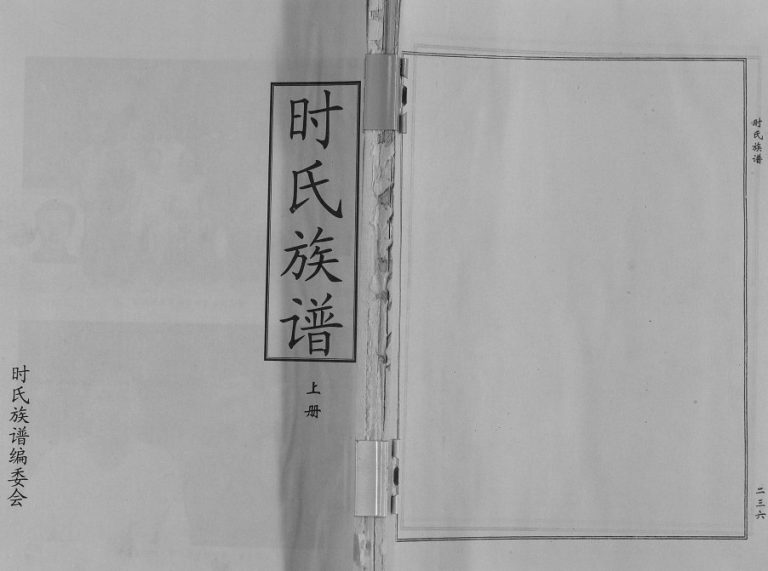 时氏族谱
二三六
时氏族谱
上册
时氏族谱编委会